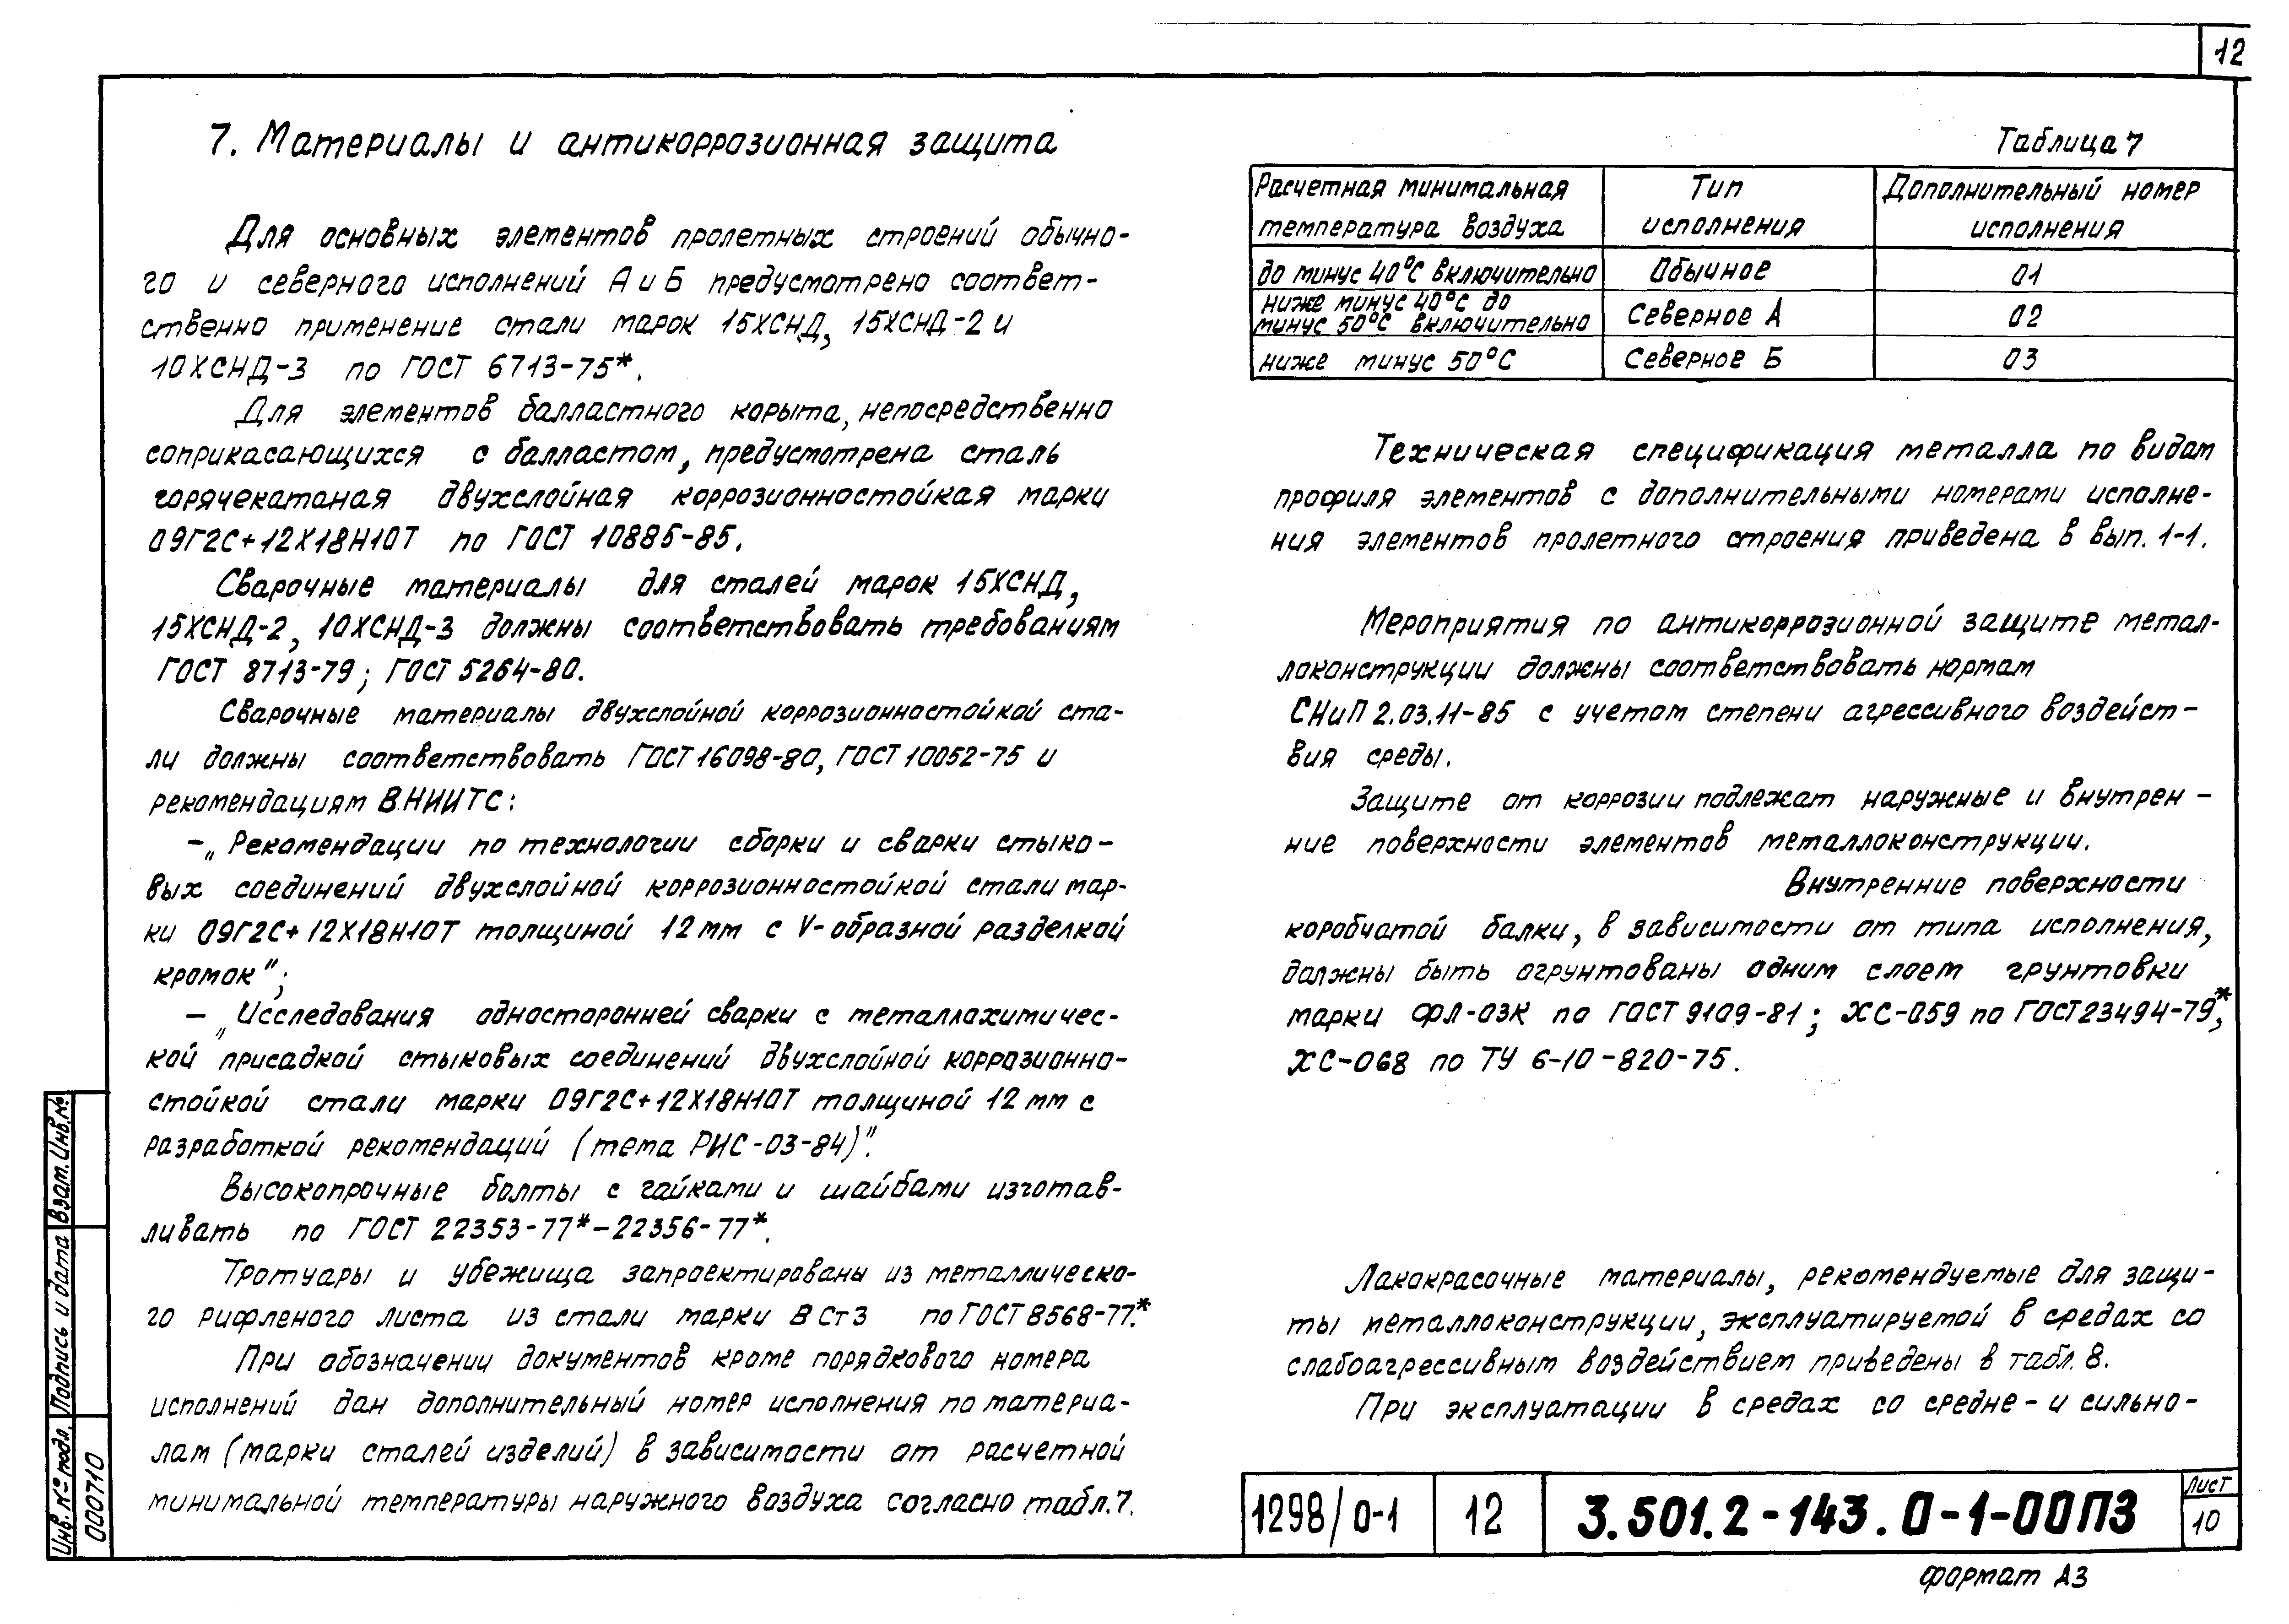 12
7. Материалы и антикоррозионная защита
Для основных элементов пролетных строений обычно-
го и северного исполнений А и Б предусмотрено соответ-
ственно применение стали марок 15ХСНД, 15ХСНД-2 и
10ХСНД-3 по ГОСТ 6713-75*.
Для элементов балластного корыта, непосредственно
соприкасающихся с балластом, предусмотрена сталь
горячекатаная двухслойная коррозионностойкая марки
09Г2С+12Х18Н10Т по ГОСТ 10885-85.
Сварочные материалы для сталей марок 15ХСНД,
15ХСНД-2, 10ХСНД-3 должны соответствовать требованиям
ГОСТ 8713-79; ГОСТ 5264-80.
Сварочные материалы двухслойной коррозионностойкой ста-
ли должны соответствовать ГОСТ 16098-80, ГОСТ 10052-75 и
рекомендациям ВНИИТС:
–„Рекомендации по технологии сборки и сварки стыко-
вых соединений двухслойной коррозионностойкой стали мар-
ки 09Г2С+12Х18Н10Т толщиной 12 мм с V-образной разделкой
кромок";
– „Исследования односторонней сварки с металлохимичес-
кой присадкой стыковых соединений двухслойной коррозионно-
стойкой стали марки 09Г2С+12Х18Н10Т толщиной 12 мм с
разработкой рекомендаций (тема РИС-03-84)".
Высокопрочные болты с гайками и шайбами изготав-
ливать по ГОСТ 22353-77*–22356-77*.
Тротуары и убежища запроектированы из металлическо-
го рифленого листа из стали марки В Ст 3 по ГОСТ 8568-77*.
При обозначении документов кроме порядкового номера
исполнений дан дополнительный номер исполнения по материа-
лам (марки сталей изделий) в зависимости от расчетной
минимальной температуры наружного воздуха согласно табл. 7.
Таблица 7
Расчетная минимальная температура воздуха | Тип исполнения | Дополнительный номер исполнения
до минус 40°С включительно | Обычное | 01
ниже минус 40°С до минус 50°С включительно | Северное А | 02
ниже минус 50°С | Северное Б | 03
Техническая спецификация металла по видам
профиля элементов с дополнительными номерами исполне-
ния элементов пролетного строения приведена в вып. 1-1.
Мероприятия по антикоррозионной защите метал-
локонструкции должны соответствовать нормам
СНиП 2.03.11-85 с учетом степени агрессивного воздейст-
вия среды.
Защите от коррозии подлежат наружные и внутрен-
ние поверхности элементов металлоконструкции.
Внутренние поверхности
коробчатой балки, в зависимости от типа исполнения,
должны быть огрунтованы одним слоем грунтовки
марки ФЛ-03К по ГОСТ 9109-81; ХС-059 по ГОСТ 23494-79*;
ХС-068 по ТУ 6-10-820-75.
Лакокрасочные материалы, рекомендуемые для защи-
ты металлоконструкции, эксплуатируемой в средах со
слабоагрессивным воздействием приведены в табл. 8.
При эксплуатации в средах со средне- и сильно-
Взам. Инв.№
Подпись и дата
Инв. № подл.
000710
1298/0-1
12
3.501.2-143.0-1-00ПЗ
Лист
10
формат А3